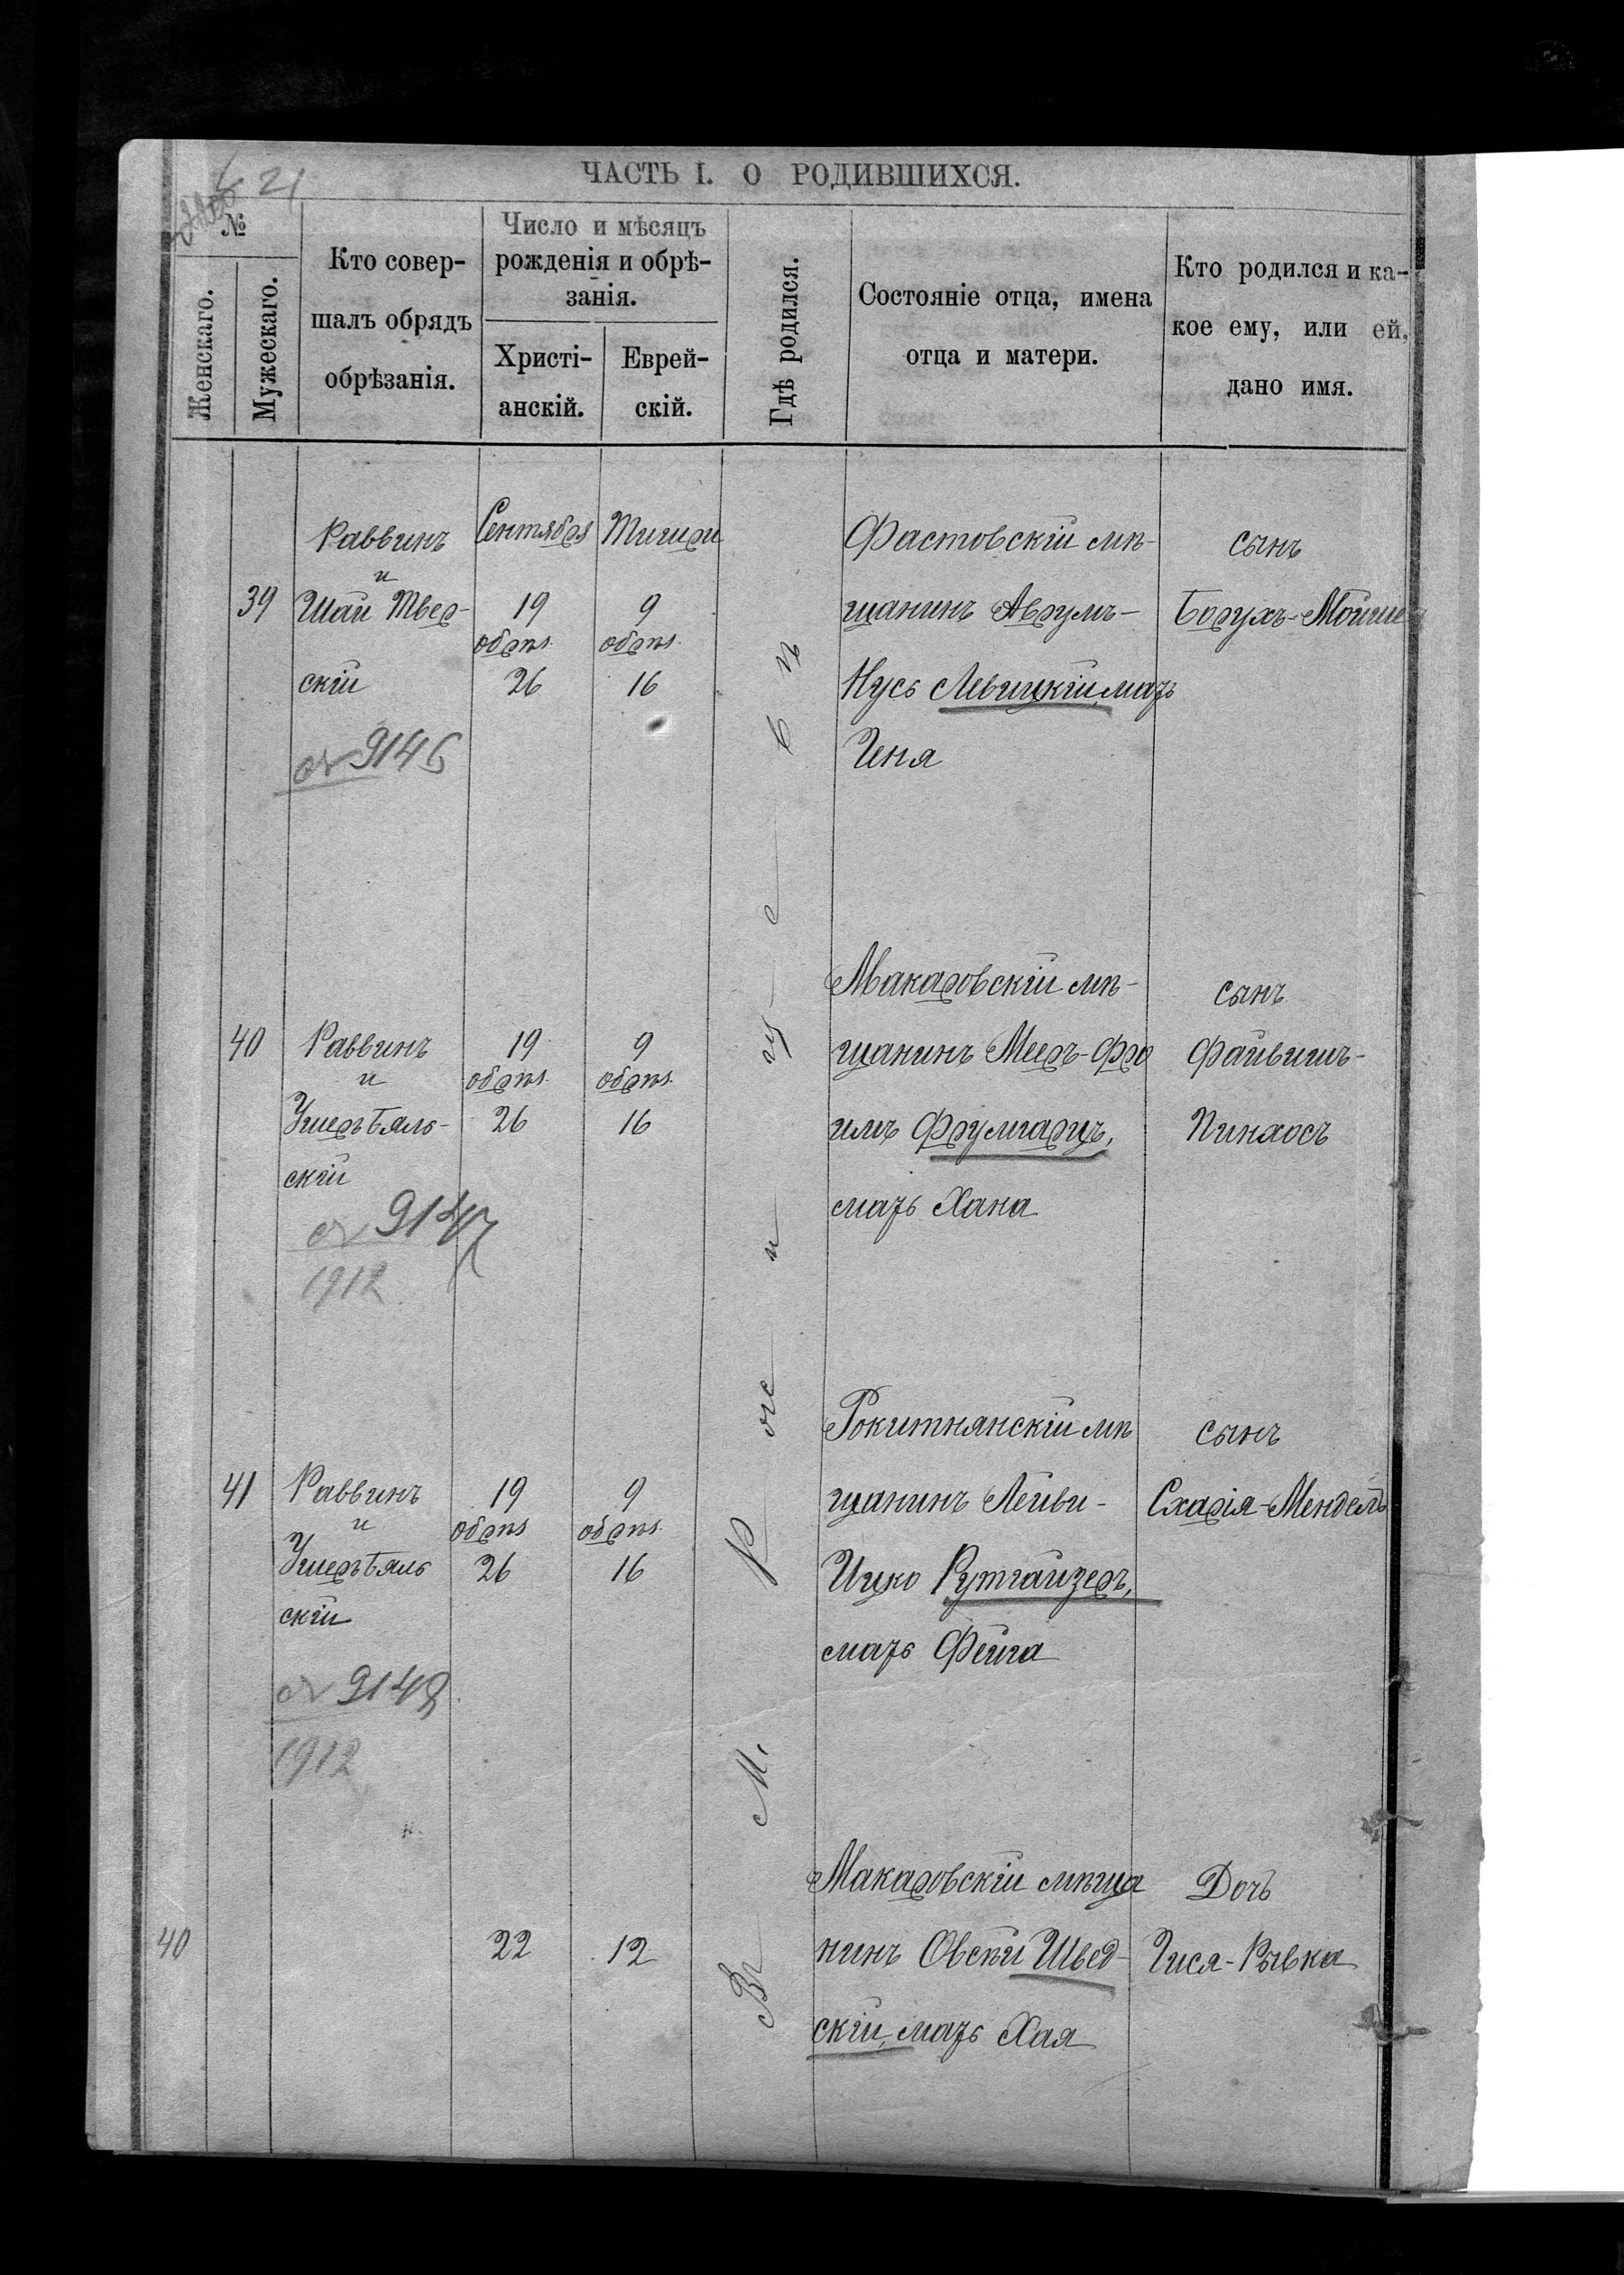 21
ЧАСТЬ I. О РОДИВШИХСЯ.
№
Женскаго.
Мужескаго.
Кто совер-
шалъ обрядъ
обрѣзанія.
Число и мѣсяцъ
рожденія и обрѣ-
занія.
Христі-
анскій.
Еврей-
скій.
Гдѣ родился.
Состояніе отца, имена
отца и матери.
Кто родился и ка-
кое ему, или ей,
дано имя.
Въ М. Ржищевѣ
39
Раввинъ
и
Шай Твер-
скій
9146
Сентября
19
обрѣз.
26
Тишри
9
обрѣз.
16
Фастовскій мѣ-
щанинъ Аврумъ-
Нусь Левицкій, мать
Геня
сынъ
Борухъ-Мойше
40
Раввинъ
и
Ушеръ Бяль-
скій
9147
1912
19
обрѣз.
26
9
обрѣз.
16
Макаровскій мѣ-
щанинъ Мееръ-Фро
имъ Фрумгарцъ,
мать Хана
сынъ
Файвишъ-
Пинхосъ
41
Раввинъ
и
Ушеръ Бяль
скій
9148
1912
19
обрѣз
26
9
обрѣз.
16
Рокитнянскій мѣ
щанинъ Лейви-
Ицко Рутгайзеръ,
мать Фейга
сынъ
Схарія-Мендель
40
22
12
Макаровскій мѣща
нинъ Овсѣй Швед-
скій, мать Хая
Дочь
Гися-Рывка